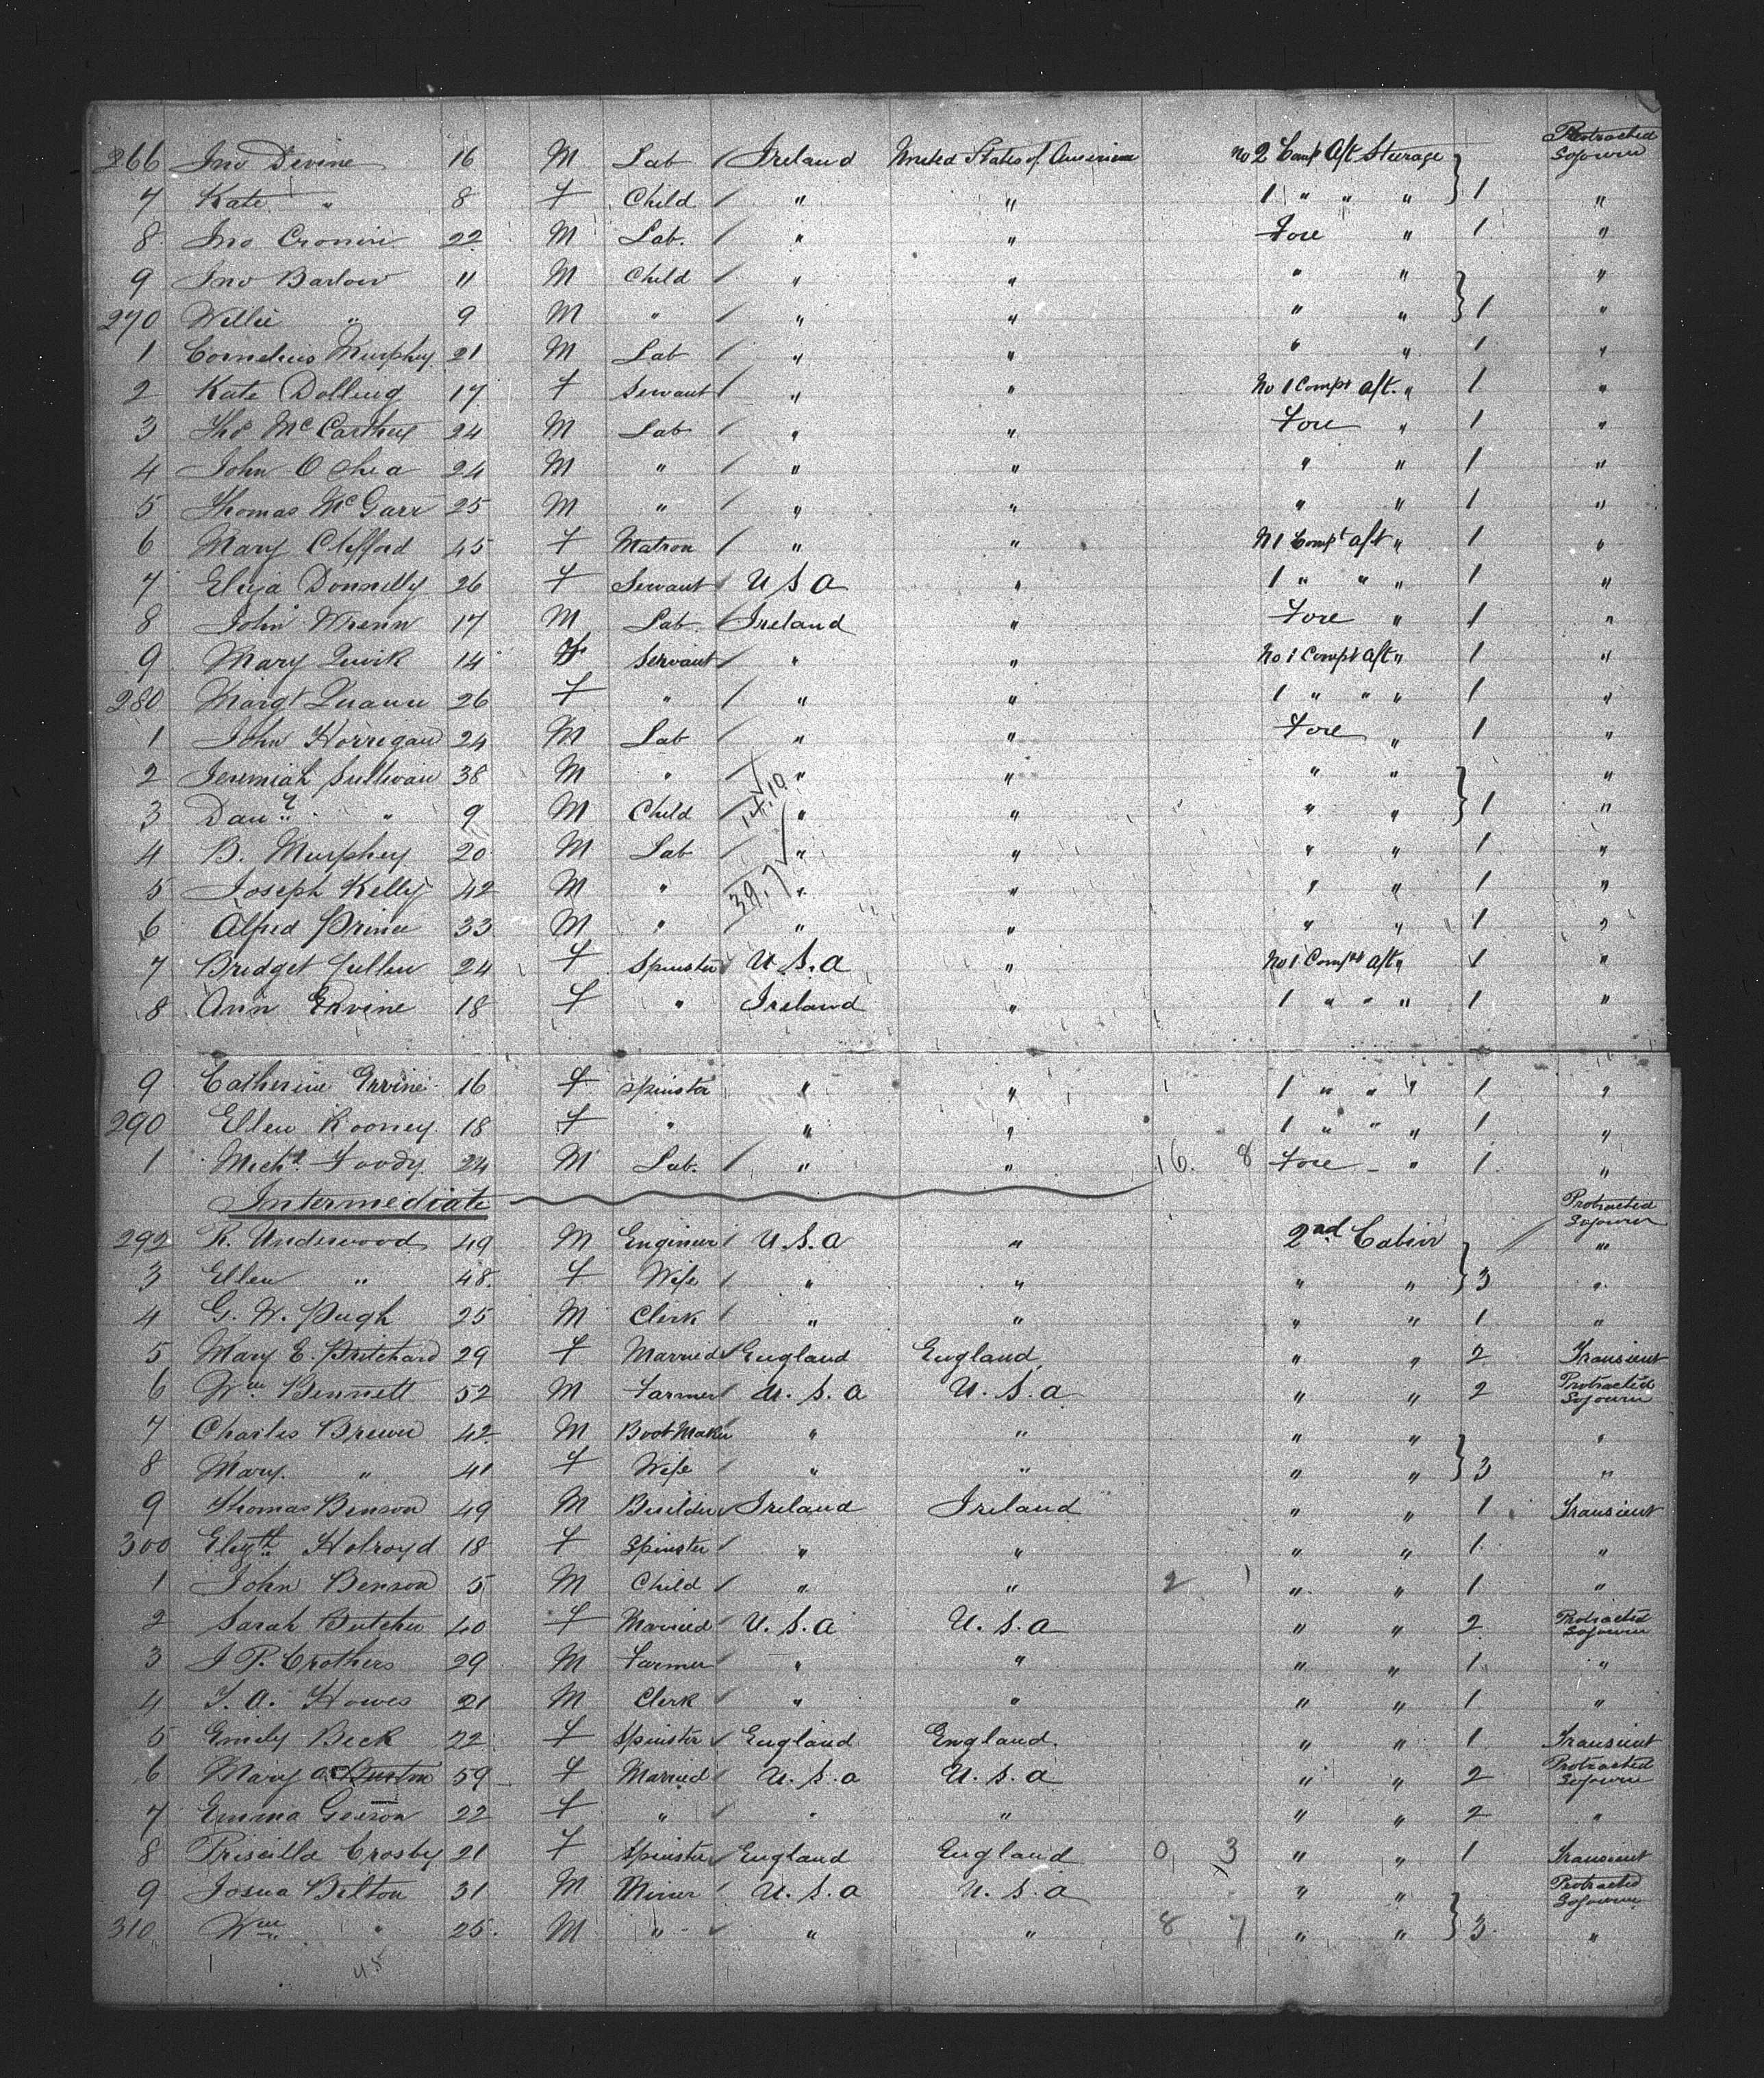 266 Jno Devine 16 M Lab / Ireland United States of America No 2 Comp Aft Steerage Protracted Sojourn
7 Kate " 8 F Child / " " 1 " " " } 1 "
8 Jno Cronin 22 M Lab. / " " Fore " 1 "
9 Jno Barlow 11 M Child / " " " " "
270 Willie " 9 M " / " " " " } 1 "
1 Cornelius Murphy 21 M Lab / " " " " 1 "
2 Kate Dolling 17 F Servant / " " No 1 Compt aft. " 1 "
3 Thos McCarthy 24 M Lab / " " Fore " 1 "
4 John O Shea 24 M " / " " " " 1 "
5 Thomas McGarr 25 M " / " " " " 1 "
6 Mary Clifford 45 F Matron / " " N 1 Compt aft " 1 "
7 Eliza Donnelly 26 F Servant / U S A " 1 " " " 1 "
8 John Wrenn 17 M Lab. / Ireland " Fore " 1 "
9 Mary Quirk 14 F Servant / " " No 1 Compt aft " 1 "
280 Margt 26 F " / " " 1 " " " 1 "
1 John Horrigan 24 M Lab / " " Fore " 1 "
2 Jeremiah Sullivan 38 M " / " " " " "
3 Danl " 9 M Child / 14.10 " " " " } 1 "
4 B. Murphy 20 M Lab / " " " " 1 "
5 Joseph Kelly 42 M " / 39.7 " " " " 1 "
6 Alfred Prince 33 M " / " " " " 1 "
7 Bridget Cullen 24 F Spinster / U.S.A " No 1 Compt aft " 1 "
8 Ann Ervine 18 F " Ireland " 1 " " " 1 "
9 Catherine Ervine 16 F Spinster " " 1 " " " 1 "
290 Ellen Rooney 18 F " " " 1 " " " 1 "
1 Michl Foody 24 M Lab. / " " 16. 8 Fore - " 1 "
Intermediate
292 R. Underwood 49 M Engineer / U.S.A " 2nd Cabin Protracted Sojourn "
3 Ellen " 48. F Wife / " " " " } 3 "
4 G. W. Pugh 25 M Clerk / " " " " 1 "
5 Mary E. Pritchard 29 F Married / England England " " 2 Transient
6 Wm Bennett 52 M Farmer / U.S.A U.S.A " " 2 Protracted Sojourn
7 Charles Brewer 42 M Boot Maker " " " " "
8 Mary " 41 F Wife / " " " " } 3 "
9 Thomas Benson 49 M Builder / Ireland Ireland " " 1 Transient
300 Elizth Holroyd 18 F Spinster / " " " " 1 "
1 John Benson 5 M Child / " " 2 1 " " 1 "
2 Sarah Butcher 40 F Married U.S.A U.S.A " " 2 Protracted Sojourn
3 J P. Crothers 29 M Farmer / " " " " 1 "
4 T. A. Howes 21 M Clerk / " " " " 1 "
5 Emily Beck 22 F Spinster / England England. " " 1 Transient
6 Mary A Burton 59 F Married / U.S.A U.S.A " " 2 Protracted Sojourn
7 Emma Geeson 22 F " / " " " " 2 "
8 Priscilla Crosby 21 F Spinster / England England 0 3 " " 1 Transient
9 Josua Bilton 31 M Miner / U.S.A U.S.A " " Protracted Sojourn
310 Wm " 25. M " / " " 8 7 " " } 3 "
48